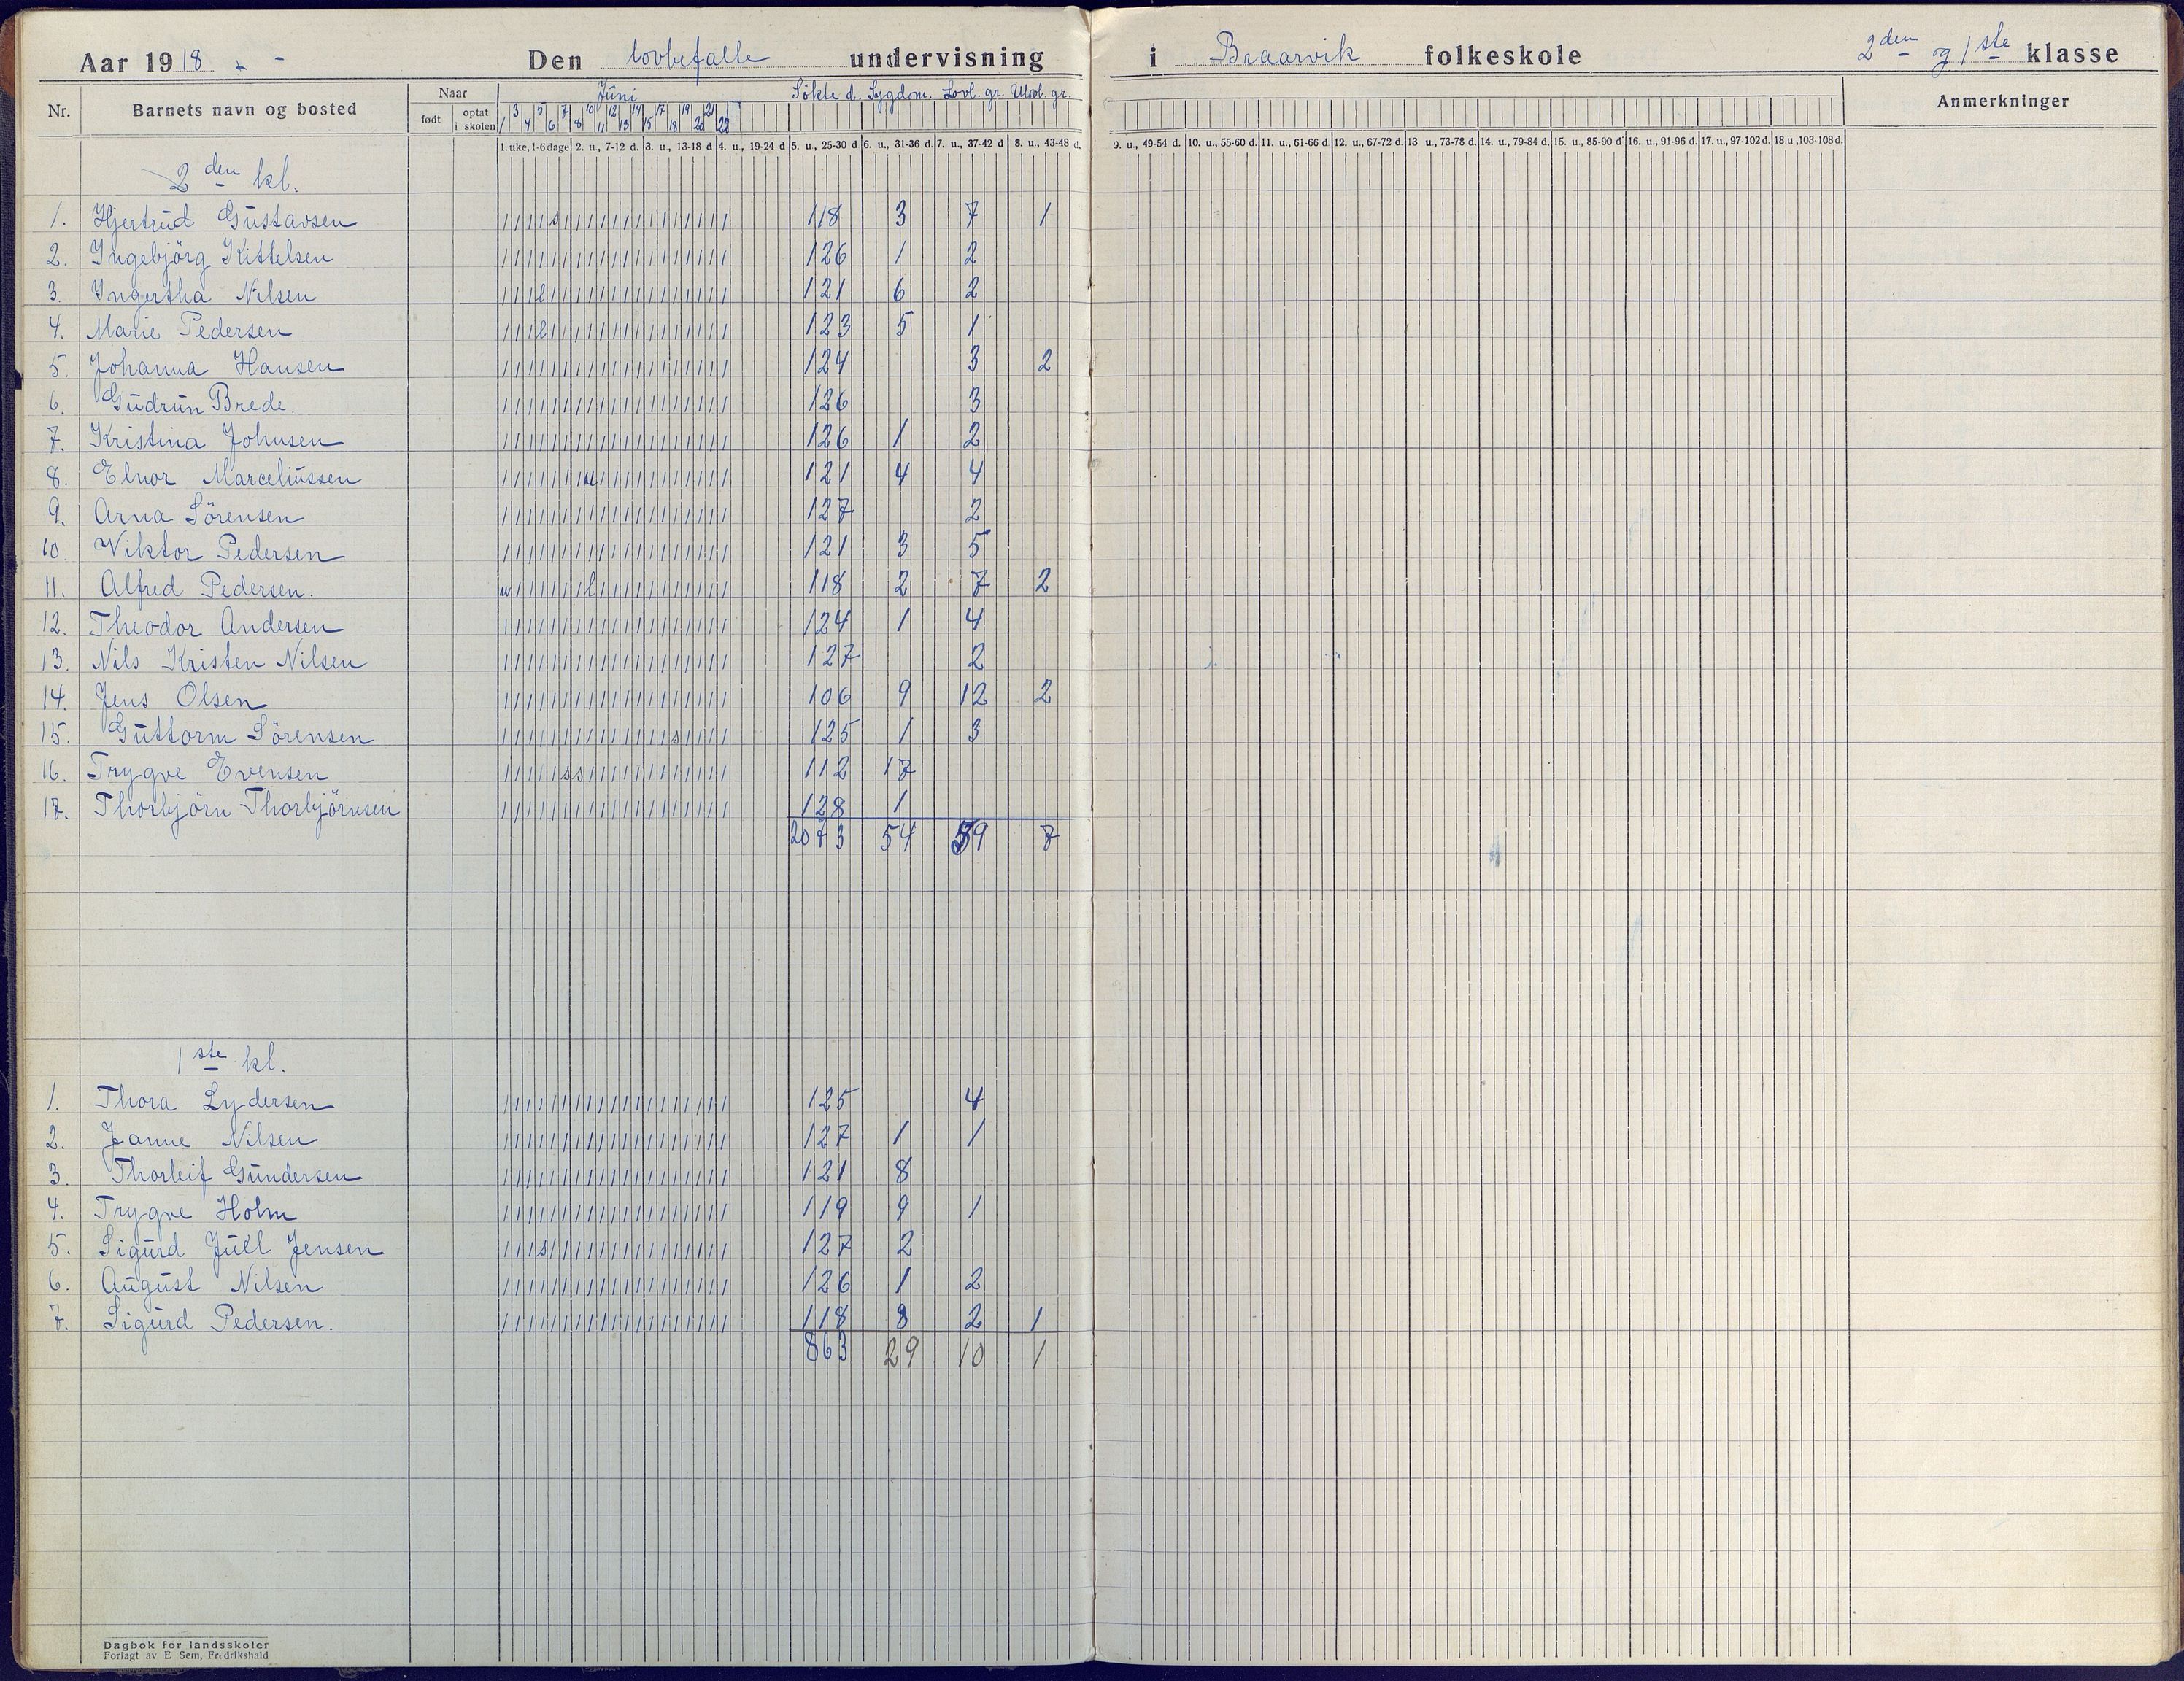 Aar 1918 Den lovbefalte undervisning i Braarvik folkeskole 2den og 1ste klasse
Nr. Barnets navn og bosted Naar født optat i skolen Juni Søkte d. Sygdom. Lovl. gr. Ulovl. gr. Anmerkninger
1 3 4 5 6 7 8 10 11 12 13 14 15 17 18 19 20 21 22
1. uke, 1-6 dage 2. u., 7-12 d. 3. u., 13-18 d 4. u., 19-24 d 5. u., 25-30 d 6. u., 31-36 d. 7. u., 37-42 d 8. u., 43-48 d. 9. u., 49-54 d. 10. u., 55-60 d. 11. u., 61-66 d 12. u., 67-72 d. 13 u., 73-78 d. 14. u., 79-84 d. 15. u., 85-90 d 16. u., 91-96 d. 17. u., 97-102 d. 18 u., 103-108 d.
2den kl.
1. Hjertrud Gustavsen / / / / / s / / / / / / / / / / / / / 118 3 7 1
2. Ingebjörg Kittelsen / / / / / / / / / / / / / / / / / / / 126 1 2
3. Ingertha Nilsen / / / l / / / / / / / / / / / / / / / 121 6 2
4. Marie Pedersen / / / l / / / / / / / / / / / / / / / 123 5 1
5. Johanna Hansen / / / / / / / / / / / / / / / / / / / 124 3 2
6. Gudrun Brede. / / / / / / / / / / / / / / / / / / / 126 3
7. Kristina Johnsen / / / / / / / / / / / / / / / / / / / 126 1 2
8. Elnor Marceliussen 121 4 4
9. Arna Sörensen / / / / / / / / / / / / / / / / / / / 127 2
10 Viktor Pedersen / / / / / / / / / / / / / / / / / / / 121 3 5
11. Alfred Pedersen. u / / / / / / l / / / / / / / / / / / 118 2 7 2
12. Theodor Andersen / / / / / / / / / / / / / / / / / / / 124 1 4
13. Nils Kristen Nilsen / / / / / / / / / / / / / / / / / / / 127 2
14. Jens Olsen / / / / / / / / / / / / / / / / / / / 106 9 12 2
15. Guttorm Sörensen / / / / / / / / / / / / / / s / / / / 125 1 3
16. Trygve Evensen / / / / / s s / / / / / / / / / / / / 112 17
17. Thorbjörn Thorbjörnsen / / / / / / / / / / / / / / / / / / / 128 1
2073 54 59 7
1ste kl.
1. Thora Lydersen / / / / / / / / / / / / / / / / / / / 125 4
2. Janne Nilsen / / / / / / / / / / / / / / / / / / / 127 1 1
3 Thorleif Gundersen / / / / / / / / / / / / / / / / / / / 121 8
4. Trygve Holm / / / / / / / / / / / / / / / / / / / 119 9 1
5. Sigurd Juell Jensen / / / s / / / / / / / / / / / / / / / 127 2
6. August Nilsen / / / / / / / / / / / / / / / / / / / 126 1 2
7. Sigurd Pedersen. / / / / / / / / / / / / / / / / / / / 118 8 2 1
863 29 10 1
Dagbok for landsskoler
Forlagt av E Sem, Fredrikshald